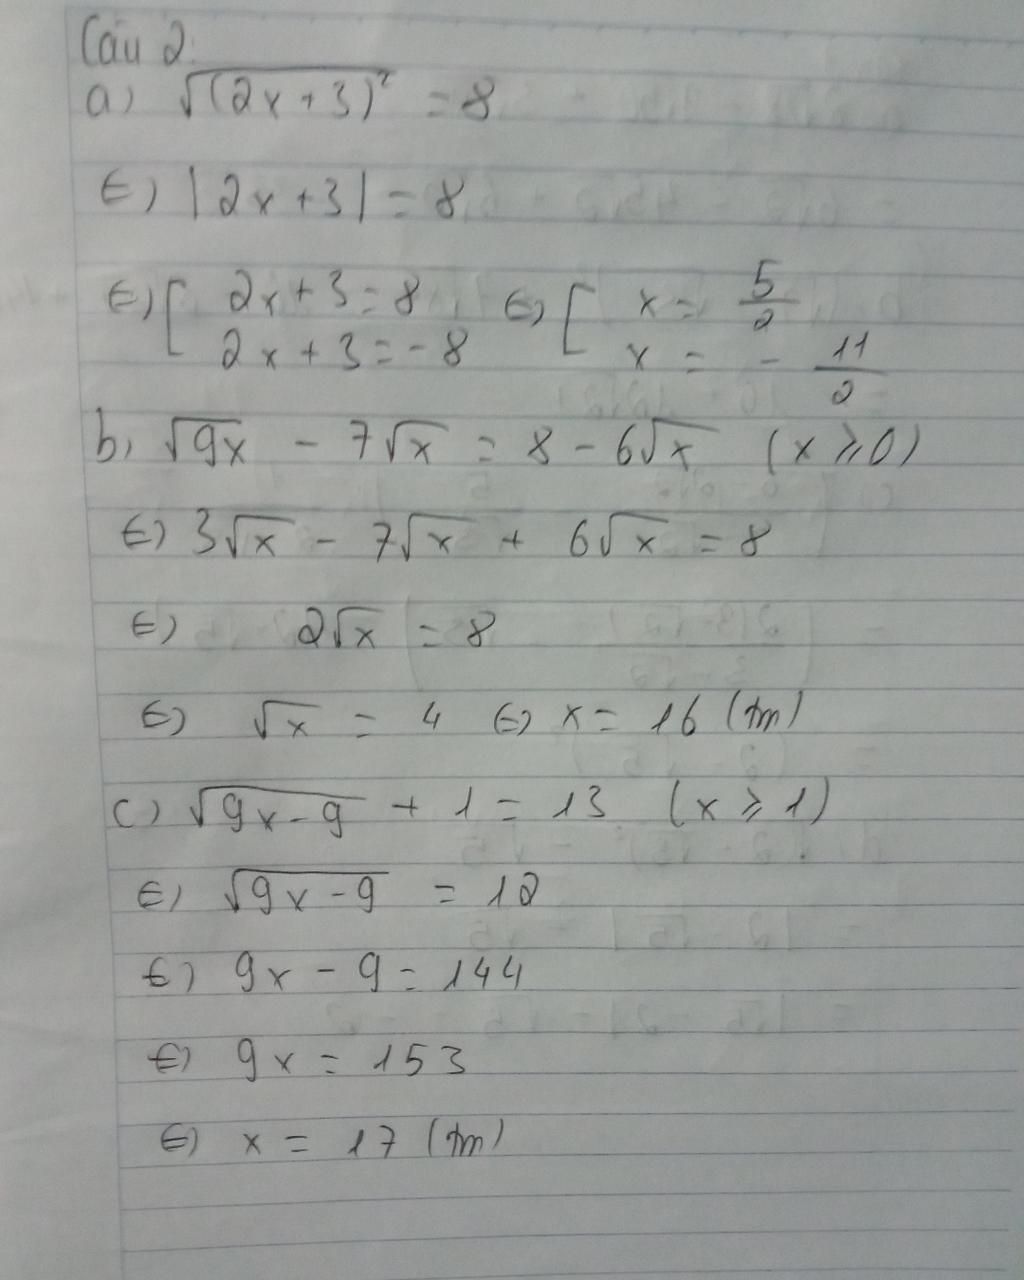 Câu 2.
a) √(2x+3)² = 8
⇔ |2x+3| = 8
⇔ [ 2x+3=8 ⇔ [ x = 5/2
2x+3=-8 x = -11/2
b, √9x - 7√x = 8 - 6√x (x ⩾ 0)
⇔ 3√x - 7√x + 6√x = 8
⇔ 2√x = 8
⇔ √x = 4 ⇔ x = 16 (tm)
c) √9x-9 + 1 = 13 (x ⩾ 1)
⇔ √9x-9 = 12
⇔ 9x - 9 = 144
⇔ 9x = 153
⇔ x = 17 (tm)